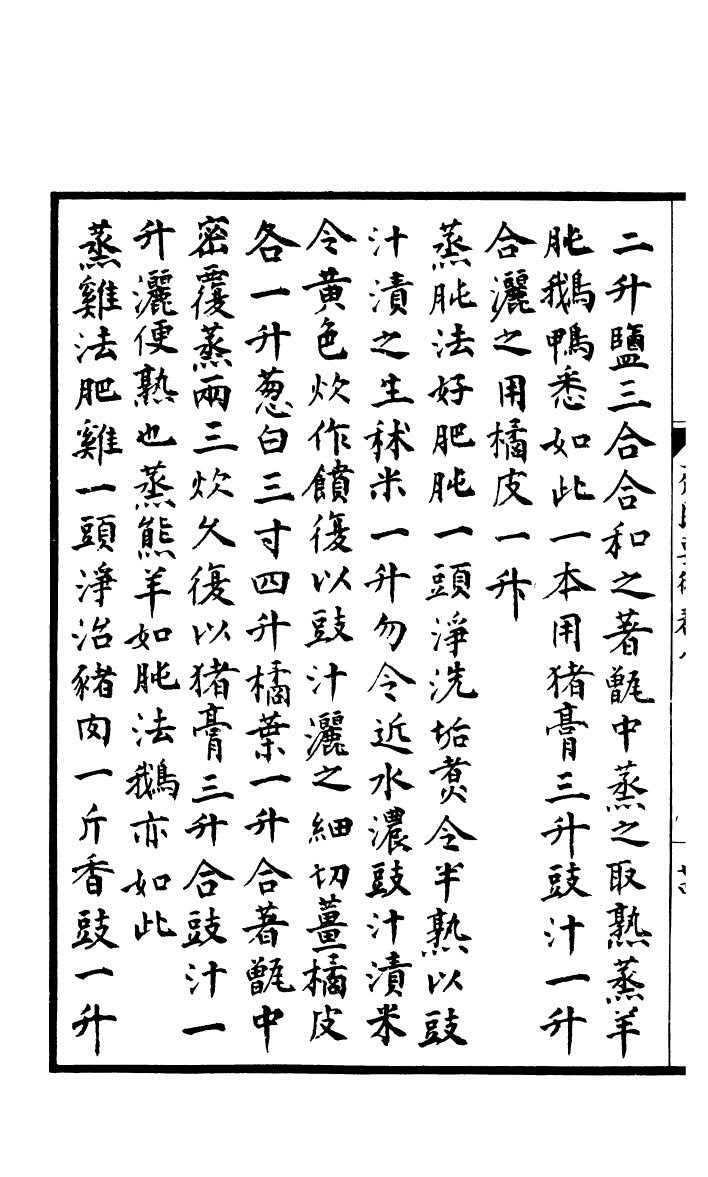 二升鹽三合合和之著甑中蒸之取熟蒸羊
肫鵝鴨悉如此一本用猪膏三升豉汁一升
合灑之用橘皮一升
蒸肫法好肥肫一頭淨洗垢煑令半熟以豉
汁漬之生秫米一升勿令近水濃豉汁漬米
令黄色炊作饙復以豉汁灑之細切薑橘皮
各一升葱白三寸四升橘葉一升合著甑中
密覆蒸兩三炊久復以猪膏三升合豉汁一
升灑便熟也蒸熊羊如肫法鵝亦如此
蒸雞法肥雞一頭淨治豬肉一斤香豉一升